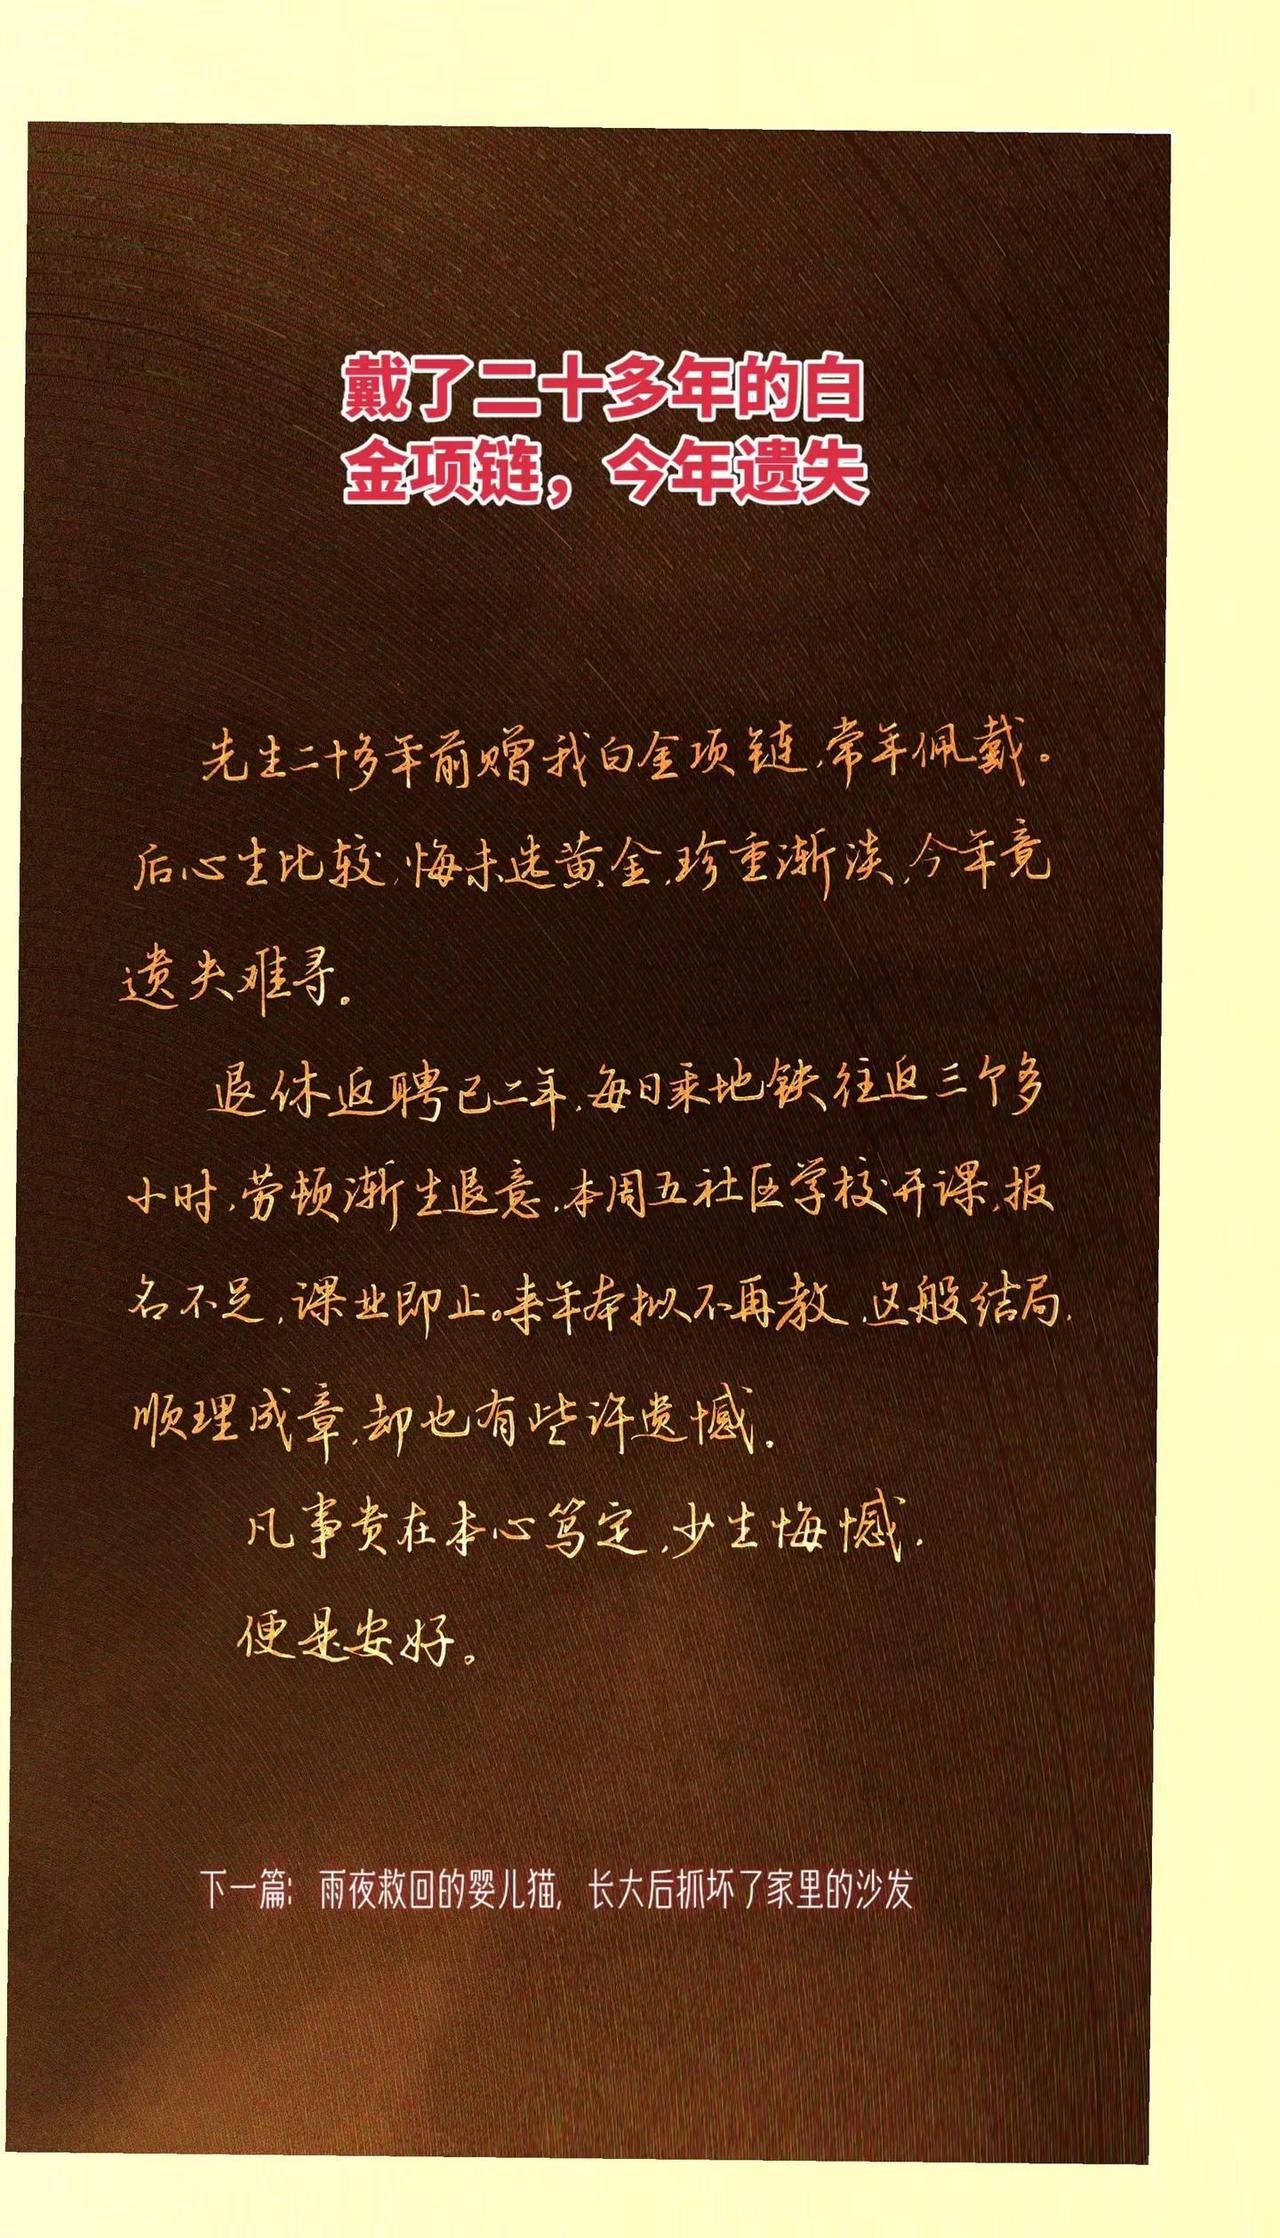 戴了二十多年的白
金项链，今年遗失
先生二十多年前赠我白金项链,常年佩戴。
后心生比较,悔未选黄金,珍重渐淡,今年竟
遗失难寻。
退休返聘已二年,每日乘地铁往返三个多
小时,劳顿渐生退意,本周五社区学校开课,报
名不足,课业即止。来年本拟不再教,这般结局,
顺理成章,却也有些许遗憾.
凡事贵在本心笃定,少生悔憾.
便是安好。
下一篇：雨夜救回的婴儿猫，长大后抓坏了家里的沙发